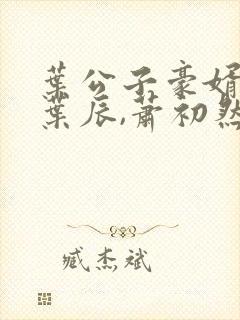 葉公子豪婿
葉辰,蕭初然
臧杰斌